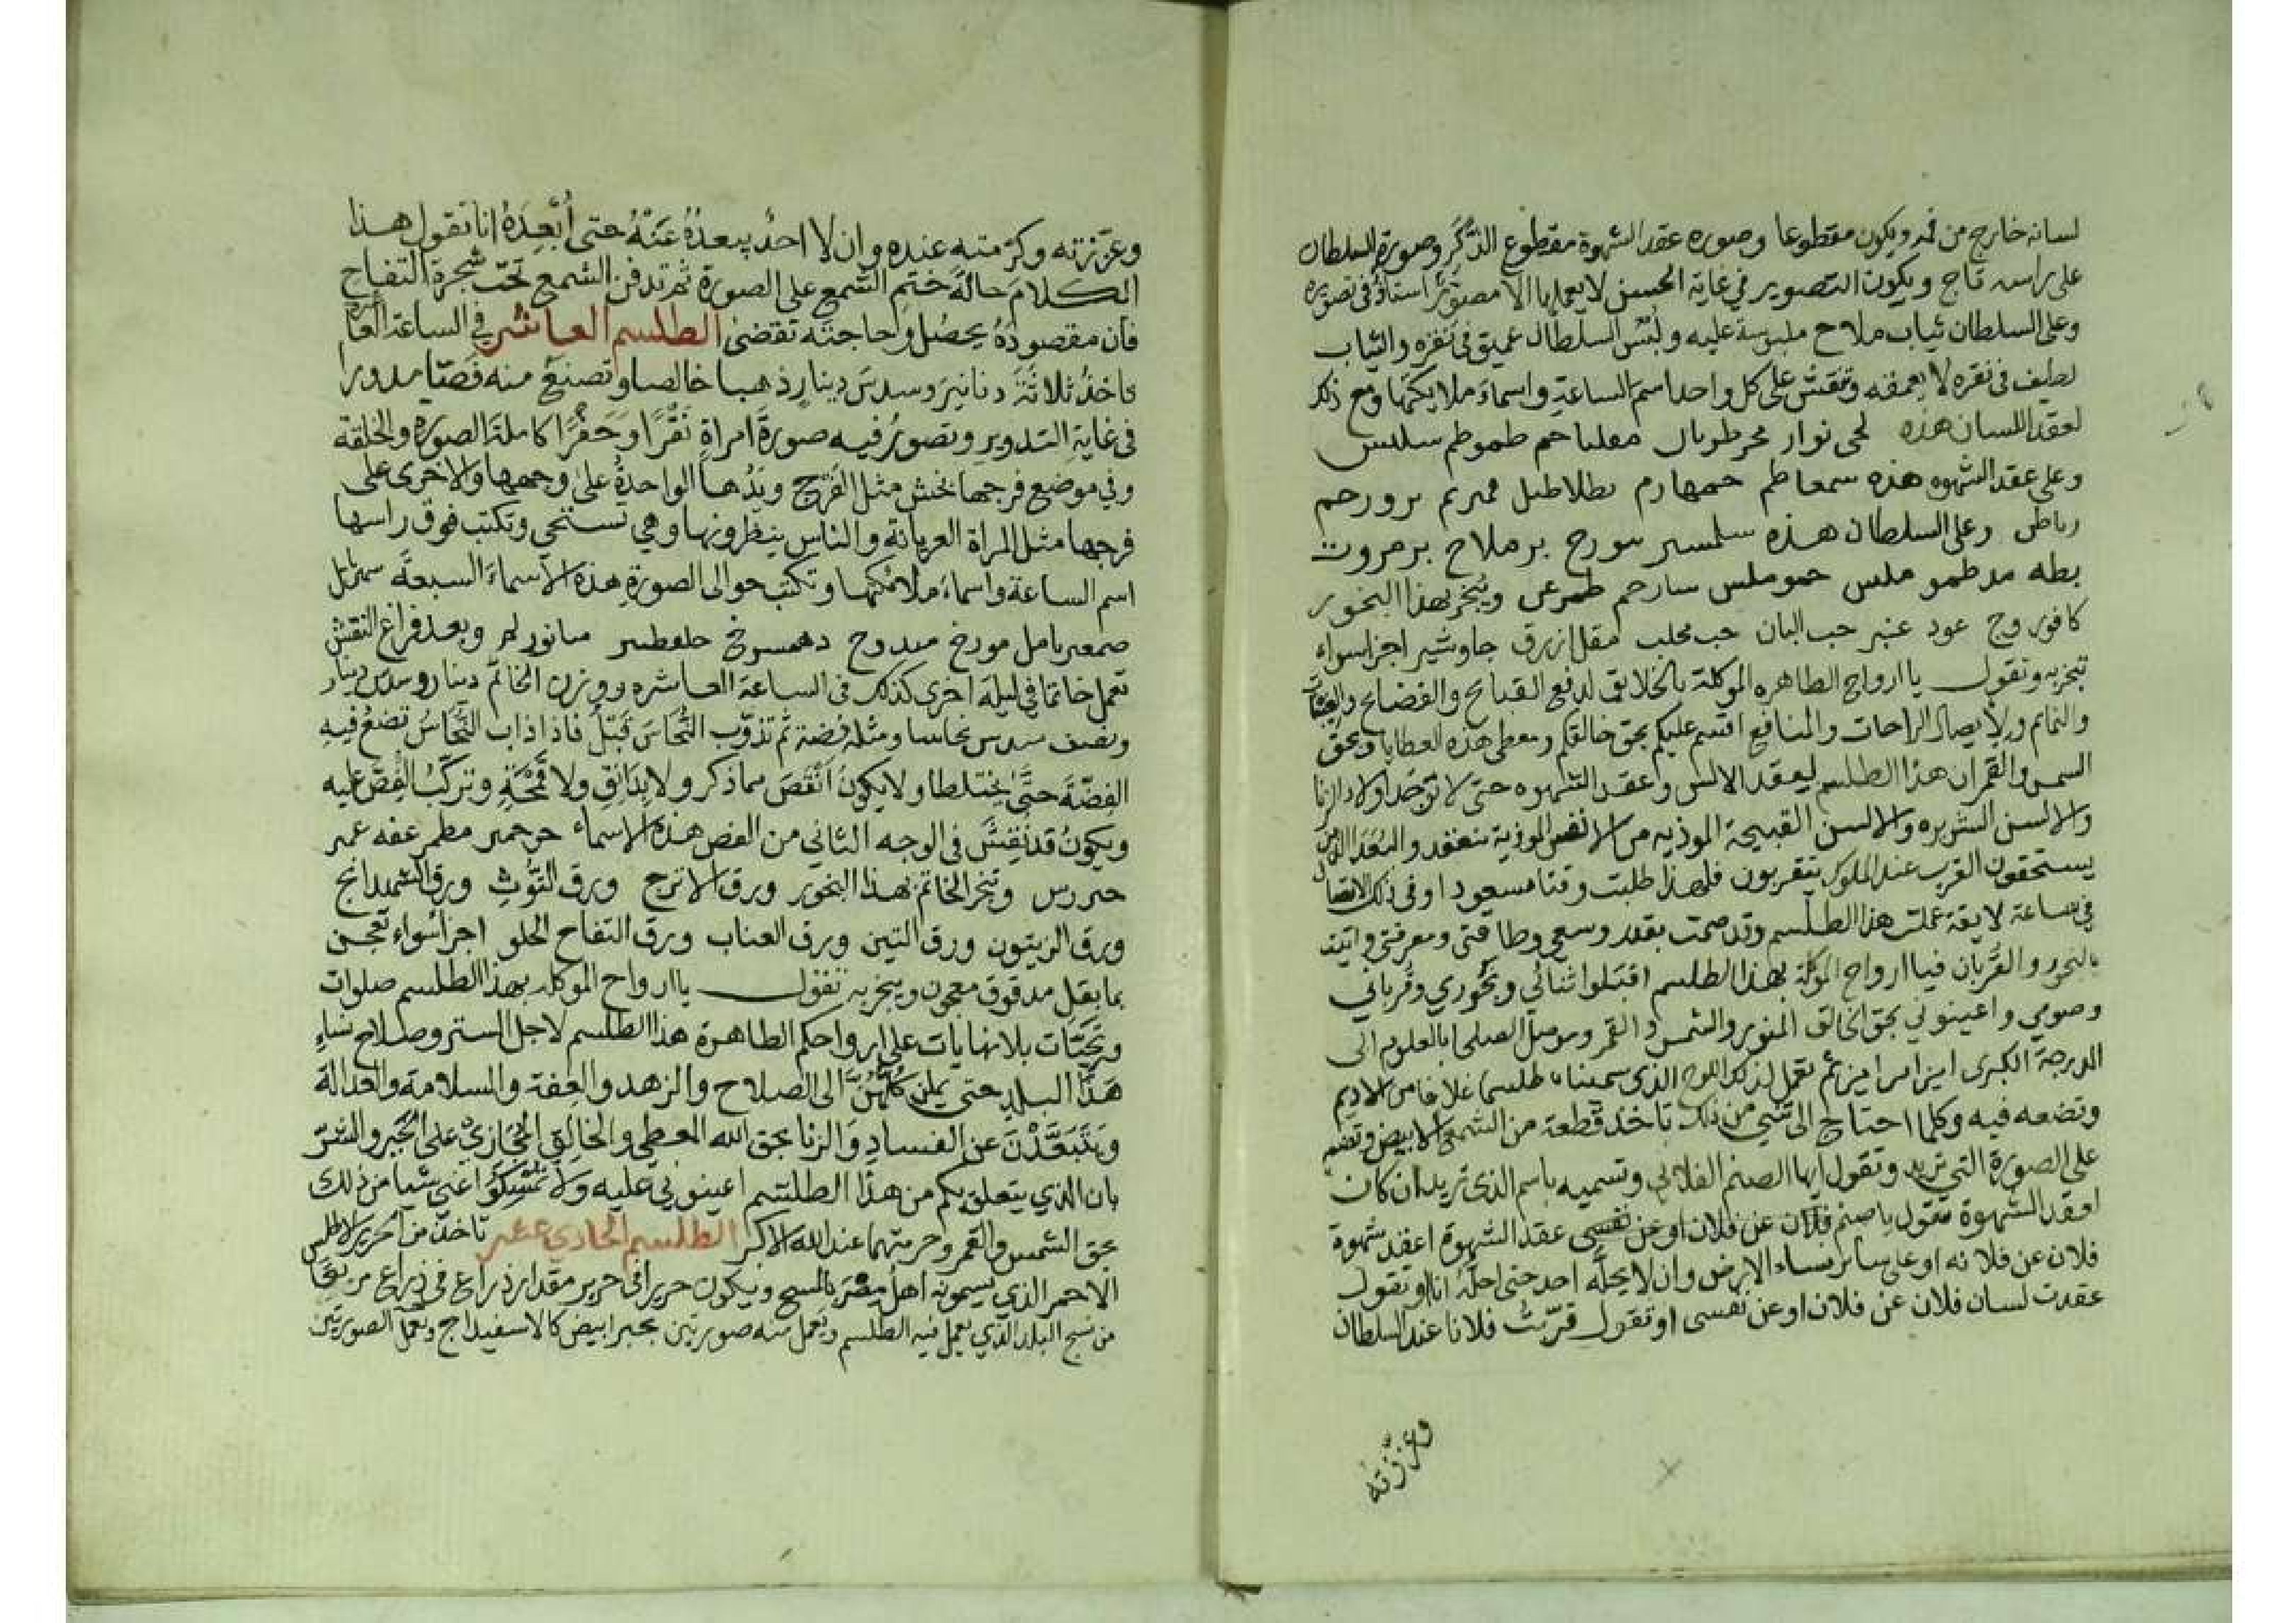 لسانه خارج من فمه ويكون مقطوعا وصوره عقد الشهوة مقطوع الذكر وصورة السلطان
على راسه تاج ويكون التصوير في غاية الحسن لا يعملها الا مصور استاذ في تصويره
وعلى السلطان ثياب ملاح ملبوسة عليه ولبس السلطان عميق في نقره والثياب
لطيف في نقره لا يعمقه وتنقش على كل واحد اسم الساعة واسماء ملايكتها ومع ذلك
لعقد اللسان هذه لحى نوار محرطوبال معلباحم طموطم سلس
وعلى عقد الشهوه هذه سمعاطم حمهارم بطلاطبل ممريم برورحم
رباطں وعلى السلطان هذه سلمسر سورح برملاح برمروت
بطه مدطمو ملس حمو ملس سارحم طمرعں ويبخر بهذا البخور
كافور وج عود عنبر حب البان حب محلب مقل ازرق جاوشير اجزا سواء
تبخر به وتقول يا ارواح الطاهره الموكلة بالخلايق لدفع القبايح والفضايح
والنمائم ولايصال الراحات والمنافع اقسم عليكم بحق خالقكم ومعطى هذه العطايا وبحق
الشمس والقمر ان هذا الطلسم ليعقد الالسن واعقد الشهوه حتى لا توجد اولاد الزنا
والالسن الشريره والالسن القبيحة الموذيه من الانفس الموذية تنعقد والبعد الذين
يستحقون القرب عند الملوك يتقربون فلهذا طلبت وقتا مسعودا وفي ذلك
في ساعة لايقة عملت هذا الطلسم وقد صمت بقدر وسعى وطاقتى ومعرفتى واتيت
بالبخور والقربان فيا ارواح الموكلة بهذا الطلسم اقبلوا ثنائي وبخوري وقرباني
وصومي واعينوني بحق الخالق المنور والشمس والقمر وموصل الصلحا بالعلوم الى
الدرجة الكبرى اميز امر اميز ثم تعمل لذلك اللوح الذى سميناه طلسما غلافا من الاديم
وتضعه فيه وكلما احتاج الى شي من ذلك تاخذ قطعة من الشمع الابيض وتضعه
على الصورة التي تريد وتقول ايها الصنم الفلاني وتسميه باسم الذى تريد ان كان
لعقد الشهوة تقول يا صنم فلان عن فلان او عن نفسى عقد الشهوة اعقد شهوة
فلان عن فلانه او على ساير نساء الارض وان لا يحله احد حتى احله انا او تقول
عقدت لسان فلان عن فلان او عن نفسى او تقول قربت فلانا عند السلطان
وعززته
وعززته وكرمته عنده وان لا احد يبعده عنه حتى أبعده انا تقول هذا
الكلام حالة ختم الشمع على الصورة ثم تدفن الشمع تحت شجرة التفاح
فان مقصوده يحصل وحاجته تقضى الطلسم العاشر في الساعة العاشره
تاخذ ثلاثة دنانير وسدس دينار ذهبا خالصا وتصنع منه فصا مدورا
في غاية التدوير وتصور فيه صورة امراة نقرا وحفرا كاملة الصورة والخلقة
وفي موضع فرجها بخش مثل الفرج ويدها الواحدة على وجهها والاخرى على
فرجها مثل المراة العريانة والناس ينظرونها وهي تستحي وتكتب فوق راسها
اسم الساعة واسماء ملائكتها وتكتب حوالى الصورة هذه الاسماء السبعة
صمعرىامل مورخ مىدوح دهمسوخ حلعطىىر مىانورلم وبعد فراغ النقش
تعمل خاتما في ليلة اخرى كذلك في الساعة العاشره ووزن الخاتم دينار وسدس دينار
ونصف سدس نحاسا ومثله فضة ثم تذوب النحاس قبل فاذا ذاب النحاس تضع فيه
الفضة حتى يختلطا ولا يكون انقص مما ذكر ولا بدانق ولا قمحة وتركب الفص عليه
ويكون قد نقش في الوجه الثاني من الفص هذه الاسماء حرحمىر مطمر عفه عمر
حىردس وتبخر الخاتم بهذا البخور ورق الاترج وورق التوث ورق الشهدانج
وورق الزيتون وورق التين وورق العناب وورق التفاح الحلو اجزا سواء تعجن
بما بقل مدقوق معجون ويبخر به تقول يا ارواح الموكله بهذا الطلسم صلوات
وتحيات بلا نهايات على ارواحكم الطاهرة هذا الطلسم لاجل الستر وصلاح نساء
هذا البلد حتى يملن كلهن الى الصلاح والزهد والعفة والسلامة والعدالة
ويتبعدن عن الفساد والزنا بحق الله المعطى والخالق المجازى على الخير والشر
بان الذي يتعلق بكم من هذا الطلسم اعينوني عليه ولا تمسكوا عنى شيا من ذلك
بحق الشمس والقمر وحرمتهما عند الله الاكبر الطلسم الحادي عشر تاخذ من الحرير الاطلس
الاحمر الذي يسمونه اهل مصر بالمسح ويكون حريرا في حرير مقدار ذراع في ذراع مربعا
من نسج البلد الذي يعمل فيه الطلسم ويعمل منه صورتين بحبر ابيض كالاسفيداج وتعمل الصورتين